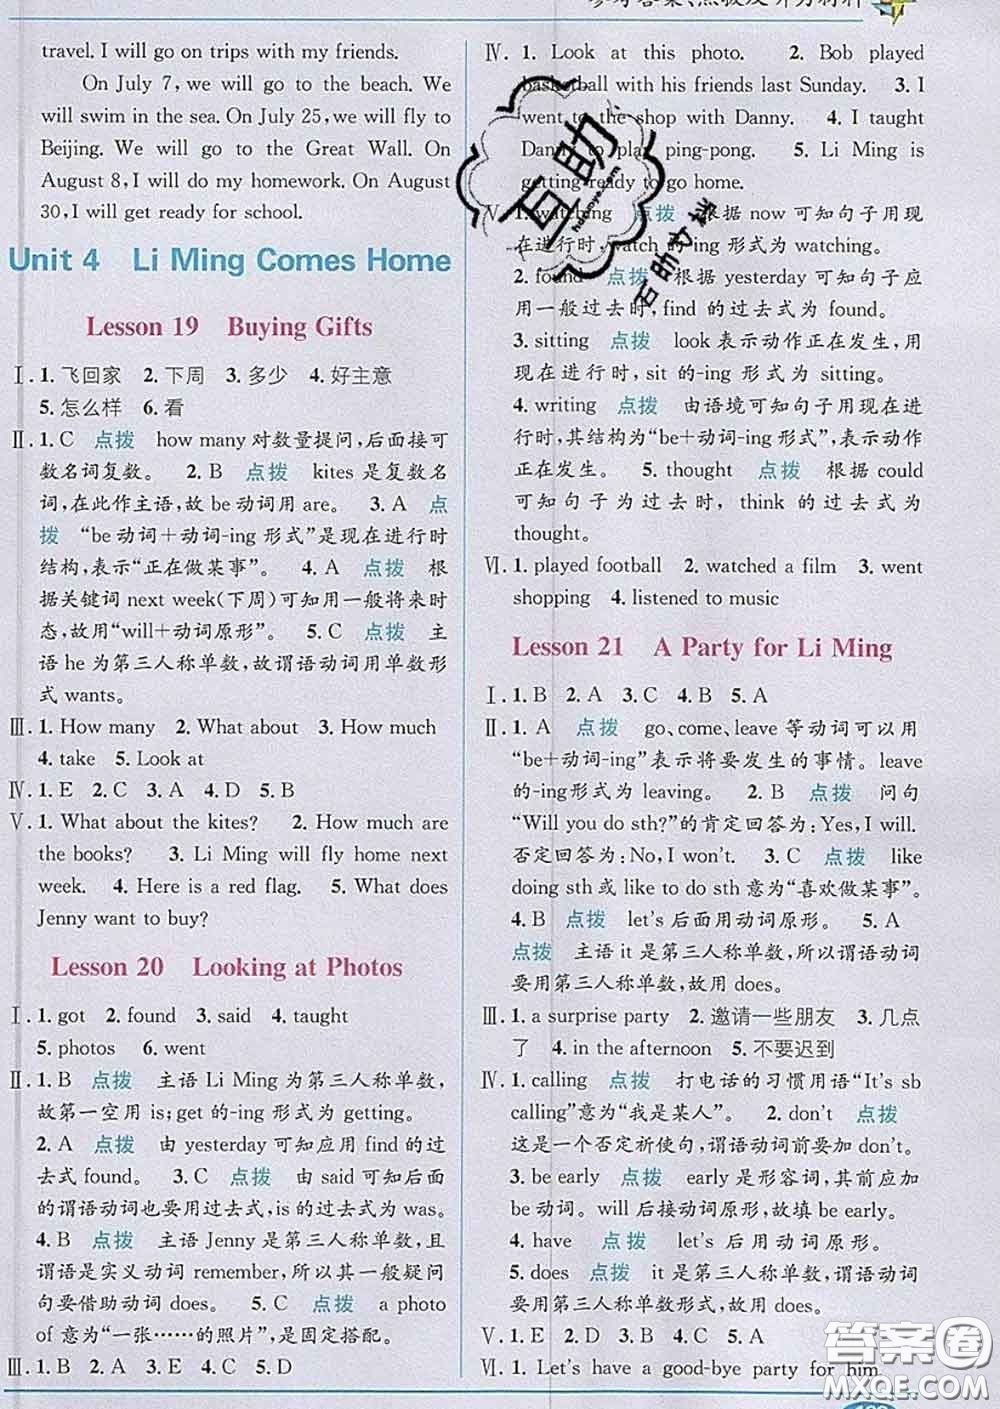 参考答案、点拨及听力材料
travel. I will go on trips with my friends.
On July 7, we will go to the beach. We
will swim in the sea. On July 25, we will fly to
Beijing. We will go to the Great Wall. On
August 8, I will do my homework. On August
30, I will get ready for school.
Unit 4 Li Ming Comes Home
Lesson 19 Buying Gifts
Ⅰ. 1. 飞回家 2. 下周 3. 多少 4. 好主意
5. 怎么样 6. 看
Ⅱ. 1. C 点拨 how many 对数量提问,后面接可
数名词复数。 2. B 点拨 kites 是复数名
词,在此作主语,故 be 动词用 are。 3. A 点
拨 “be 动词+动词-ing 形式”是现在进行时
结构,表示“正在做某事”。 4. A 点拨 根
据关键词 next week(下周)可知用一般将来时
态,故用“will+动词原形”。 5. C 点拨 主
语 he 为第三人称单数,故谓语动词用单数形
式 wants。
Ⅲ. 1. How many 2. What about 3. How much
4. take 5. Look at
Ⅳ. 1. E 2. C 3. A 4. D 5. B
Ⅴ. 1. What about the kites? 2. How much are
the books? 3. Li Ming will fly home next
week. 4. Here is a red flag. 5. What does
Jenny want to buy?
Lesson 20 Looking at Photos
Ⅰ. 1. got 2. found 3. said 4. taught
5. photos 6. went
Ⅱ. 1. B 点拨 主语 Li Ming 为第三人称单数,
故第一空用 is; get 的-ing 形式为 getting。
2. A 点拨 由 yesterday 可知应用 find 的过
去式 found。 3. C 点拨 由 said 可知后面
的谓语动词也要用过去式,is 的过去式为 was。
4. B 点拨 主语 Jenny 是第三人称单数,且
谓语是实义动词 remember,所以其一般疑问
句要借助动词 does。 5. C 点拨 a photo
of 意为“一张……的照片”,是固定搭配。
Ⅲ. 1. B 2. A 3. C 4. E 5. D
Ⅳ. 1. Look at this photo. 2. Bob played
basketball with his friends last Sunday. 3. I
went to the shop with Danny. 4. I taught
Danny to play ping-pong. 5. Li Ming is
getting ready to go home.
Ⅴ. 1. watching 点拨 根据 now 可知句子用现
在进行时,watch 的-ing 形式为 watching。
2. found 点拨 根据 yesterday 可知句子应
用一般过去时,find 的过去式为 found。
3. sitting 点拨 look 表示动作正在发生,用
现在进行时,sit 的-ing 形式为 sitting。
4. writing 点拨 由语境可知句子用现在进
行时,其结构为“be+动词-ing 形式”,表示动作
正在发生。 5. thought 点拨 根据 could
可知句子为过去时,think 的过去式为
thought。
Ⅵ. 1. played football 2. watched a film 3. went
shopping 4. listened to music
Lesson 21 A Party for Li Ming
Ⅰ. 1. B 2. A 3. C 4. B 5. A
Ⅱ. 1. A 点拨 go、come、leave 等动词可以用
“be+动词-ing”表示将要发生的事情。leave
的-ing 形式为 leaving。 2. B 点拨 问句
“Will you do sth?”的肯定回答为:Yes, I will.
否定回答为:No, I won't. 3. C 点拨 like
doing sth 或 like to do sth 意为“喜欢做某事”。
4. B 点拨 let's 后面用动词原形。 5. A
点拨 主语 it 是第三人称单数,所以谓语动词
要用第三人称单数形式,故用 does。
Ⅲ. 1. a surprise party 2. 邀请一些朋友 3. 几点
了 4. in the afternoon 5. 不要迟到
Ⅳ. 1. calling 点拨 打电话的习惯用语“It's sb
calling”意为“我是某人”。 2. don't 点拨
这是一个否定祈使句,谓语动词前要加 don't。
3. be early 点拨 early 是形容词,其前应加
be 动词。will 后接动词原形,故填 be early。
4. have 点拨 let's 后用动词原形。
5. does 点拨 it 是第三人称单数,谓语动词
要用第三人称单数形式,故用 does。
Ⅴ. 1. E 2. D 3. A 4. C 5. B
Ⅵ. 1. Let's have a good-bye party for him
互助
hdzuoye.com
答案圈
MXQE.COM